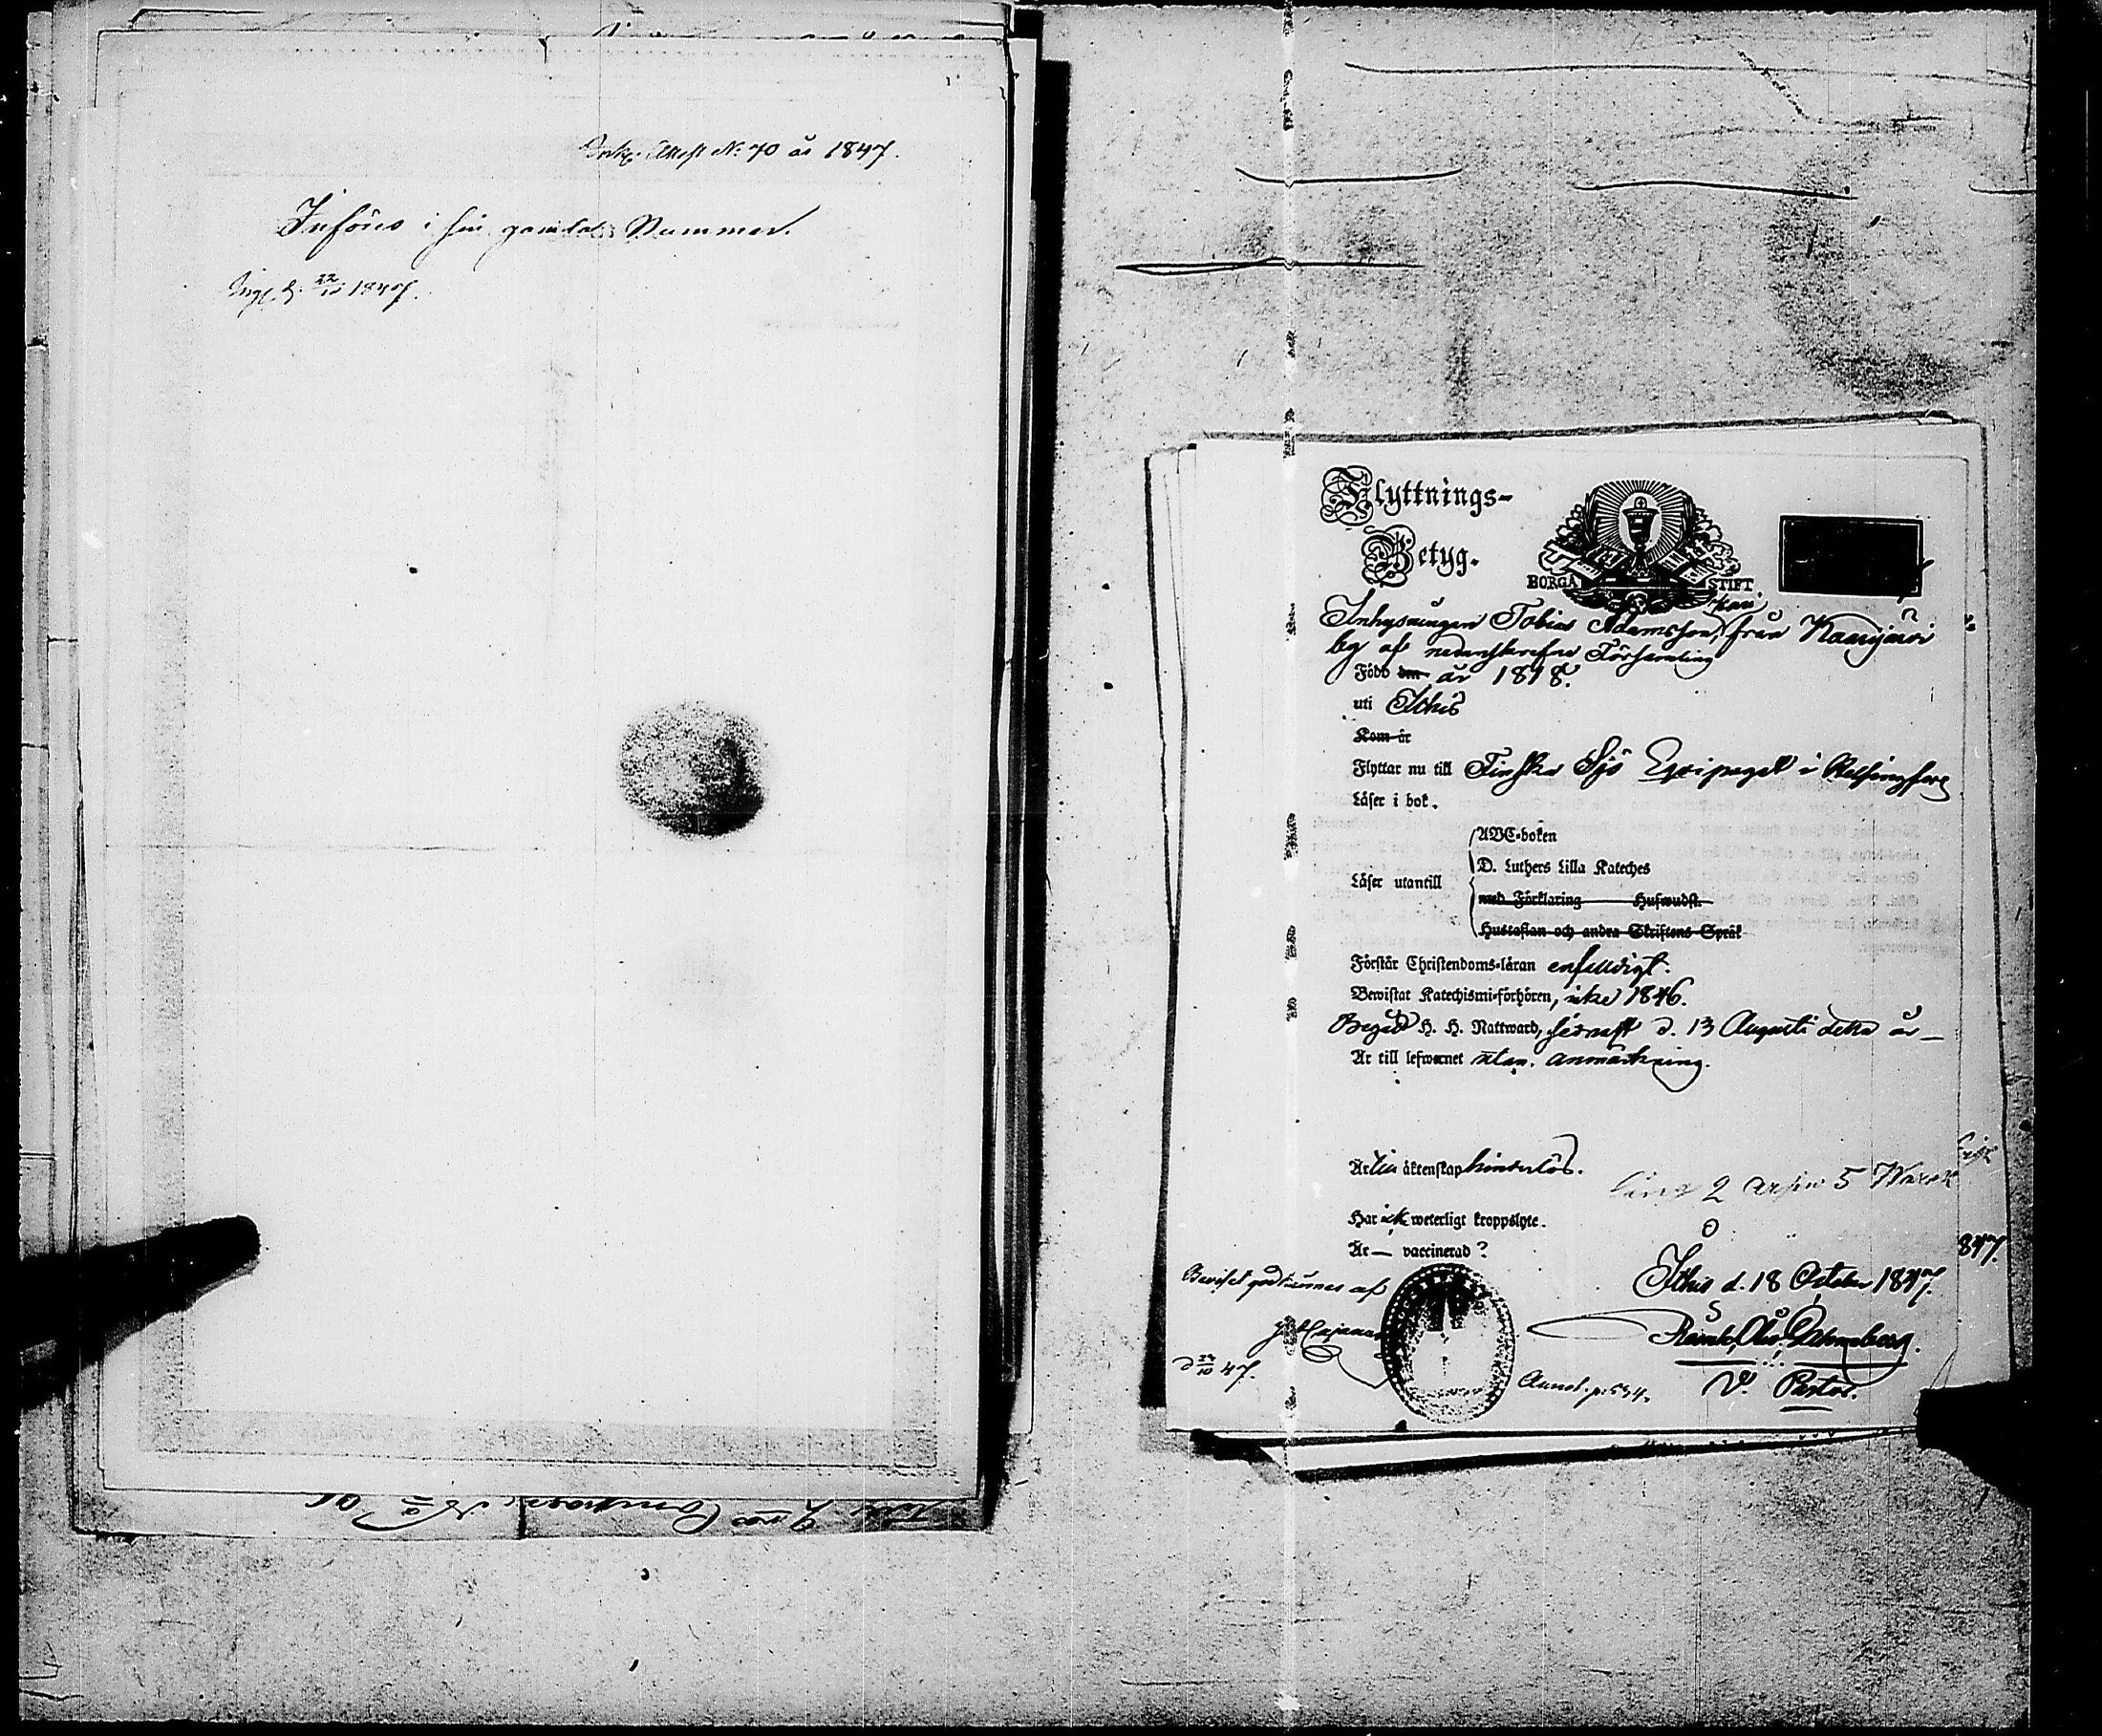 Attest No 70 år 1847.
Införes i sin gamla Nummer.
1847.
Flyttnings-
Betyg.
BORGÅ STIFT
Inhysningen Tobias Adamsson, från Kaarijärvi
by af nedanskrefne Församling
Född den år 1818.
uti Ithis
Kom år
Flyttar nu till Finska Sjö Equipaget i Helsingfors
Läser i bok.
Läser utantill
ABC-boken
D. Luthers Lilla Kateches
med Förklaring Hufwudst.
Hustaflan och andra Skriftens Språk
Förstår Christendoms-läran enfaldigt.
Bewistat Katechismi-förhören, icke 1846.
Begått H. H. Nattward, sednast d. 13 Augusti detta år
Är till lefwernet utan anmärkning.
Är till äktenskap hinderlös.
2 5
Har ick weterligt kroppslyte.
Är — vaccinerad?
847.
Ithis d. 18 October 1847.
Beviset godkännes af
d 22/10 47.
Annot. p. 534.
V. Pastor.